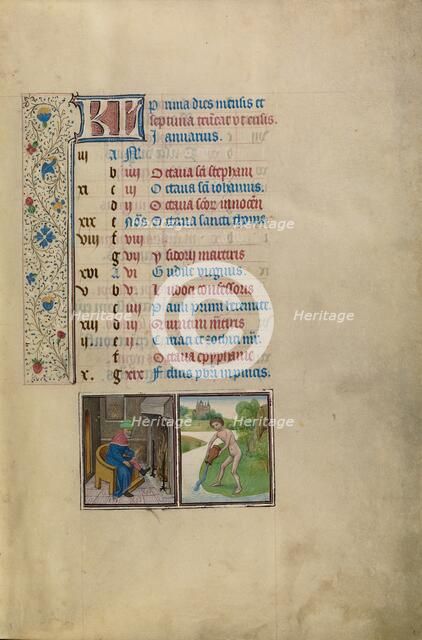 KL Prima dies mensis et
septima truncat ut ensis.
Januarius.
iii A
b iiii Octava sci stephani
xi c iii Octava sci iohannis.
d ii Octava scor innocen
xix e Nos Octava sancti thome
viii f viii
g vii Ysidori martiris
xvi A vi Gudile virginis.
v b v
c iiii Pauli primi heremite
xiii d iii martiris
ii e ii
f Octava epyphanie
x. g xix Felicis in pincis.
Heritage
Heritage
Heritage
Heritage
Heritage